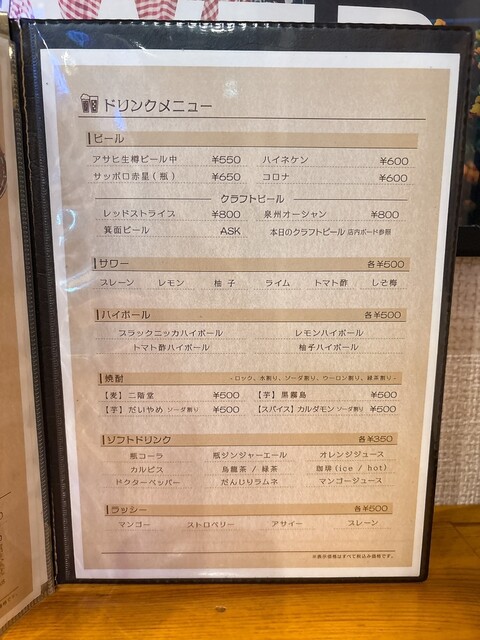 ドリンクメニュー
ビール
アサヒ生樽ビール中 ¥550 ハイネケン ¥600
サッポロ赤星(瓶) ¥650 コロナ ¥600
クラフトビール
レッドストライプ ¥800 泉州オーシャン ¥800
箕面ビール ASK 本日のクラフトビール 店内ボード参照
サワー 各¥500
プレーン レモン 柚子 ライム トマト酢 しそ梅
ハイボール 各¥500
ブラックニッカハイボール レモンハイボール
トマト酢ハイボール 柚子ハイボール
焼酎 -ロック、水割り、ソーダ割り、ウーロン割り、緑茶割り-
【麦】二階堂 ¥500 【芋】黒霧島 ¥500
【芋】だいやめ ソーダ割り ¥500 【スパイス】カルダモン ソーダ割り ¥500
ソフトドリンク 各¥350
瓶コーラ 瓶ジンジャーエール オレンジジュース
カルピス 烏龍茶 / 緑茶 珈琲(ice / hot)
ドクターペッパー だんじりラムネ マンゴージュース
ラッシー 各¥500
マンゴー ストロベリー アサイー プレーン
※表示価格はすべて税込み価格です。